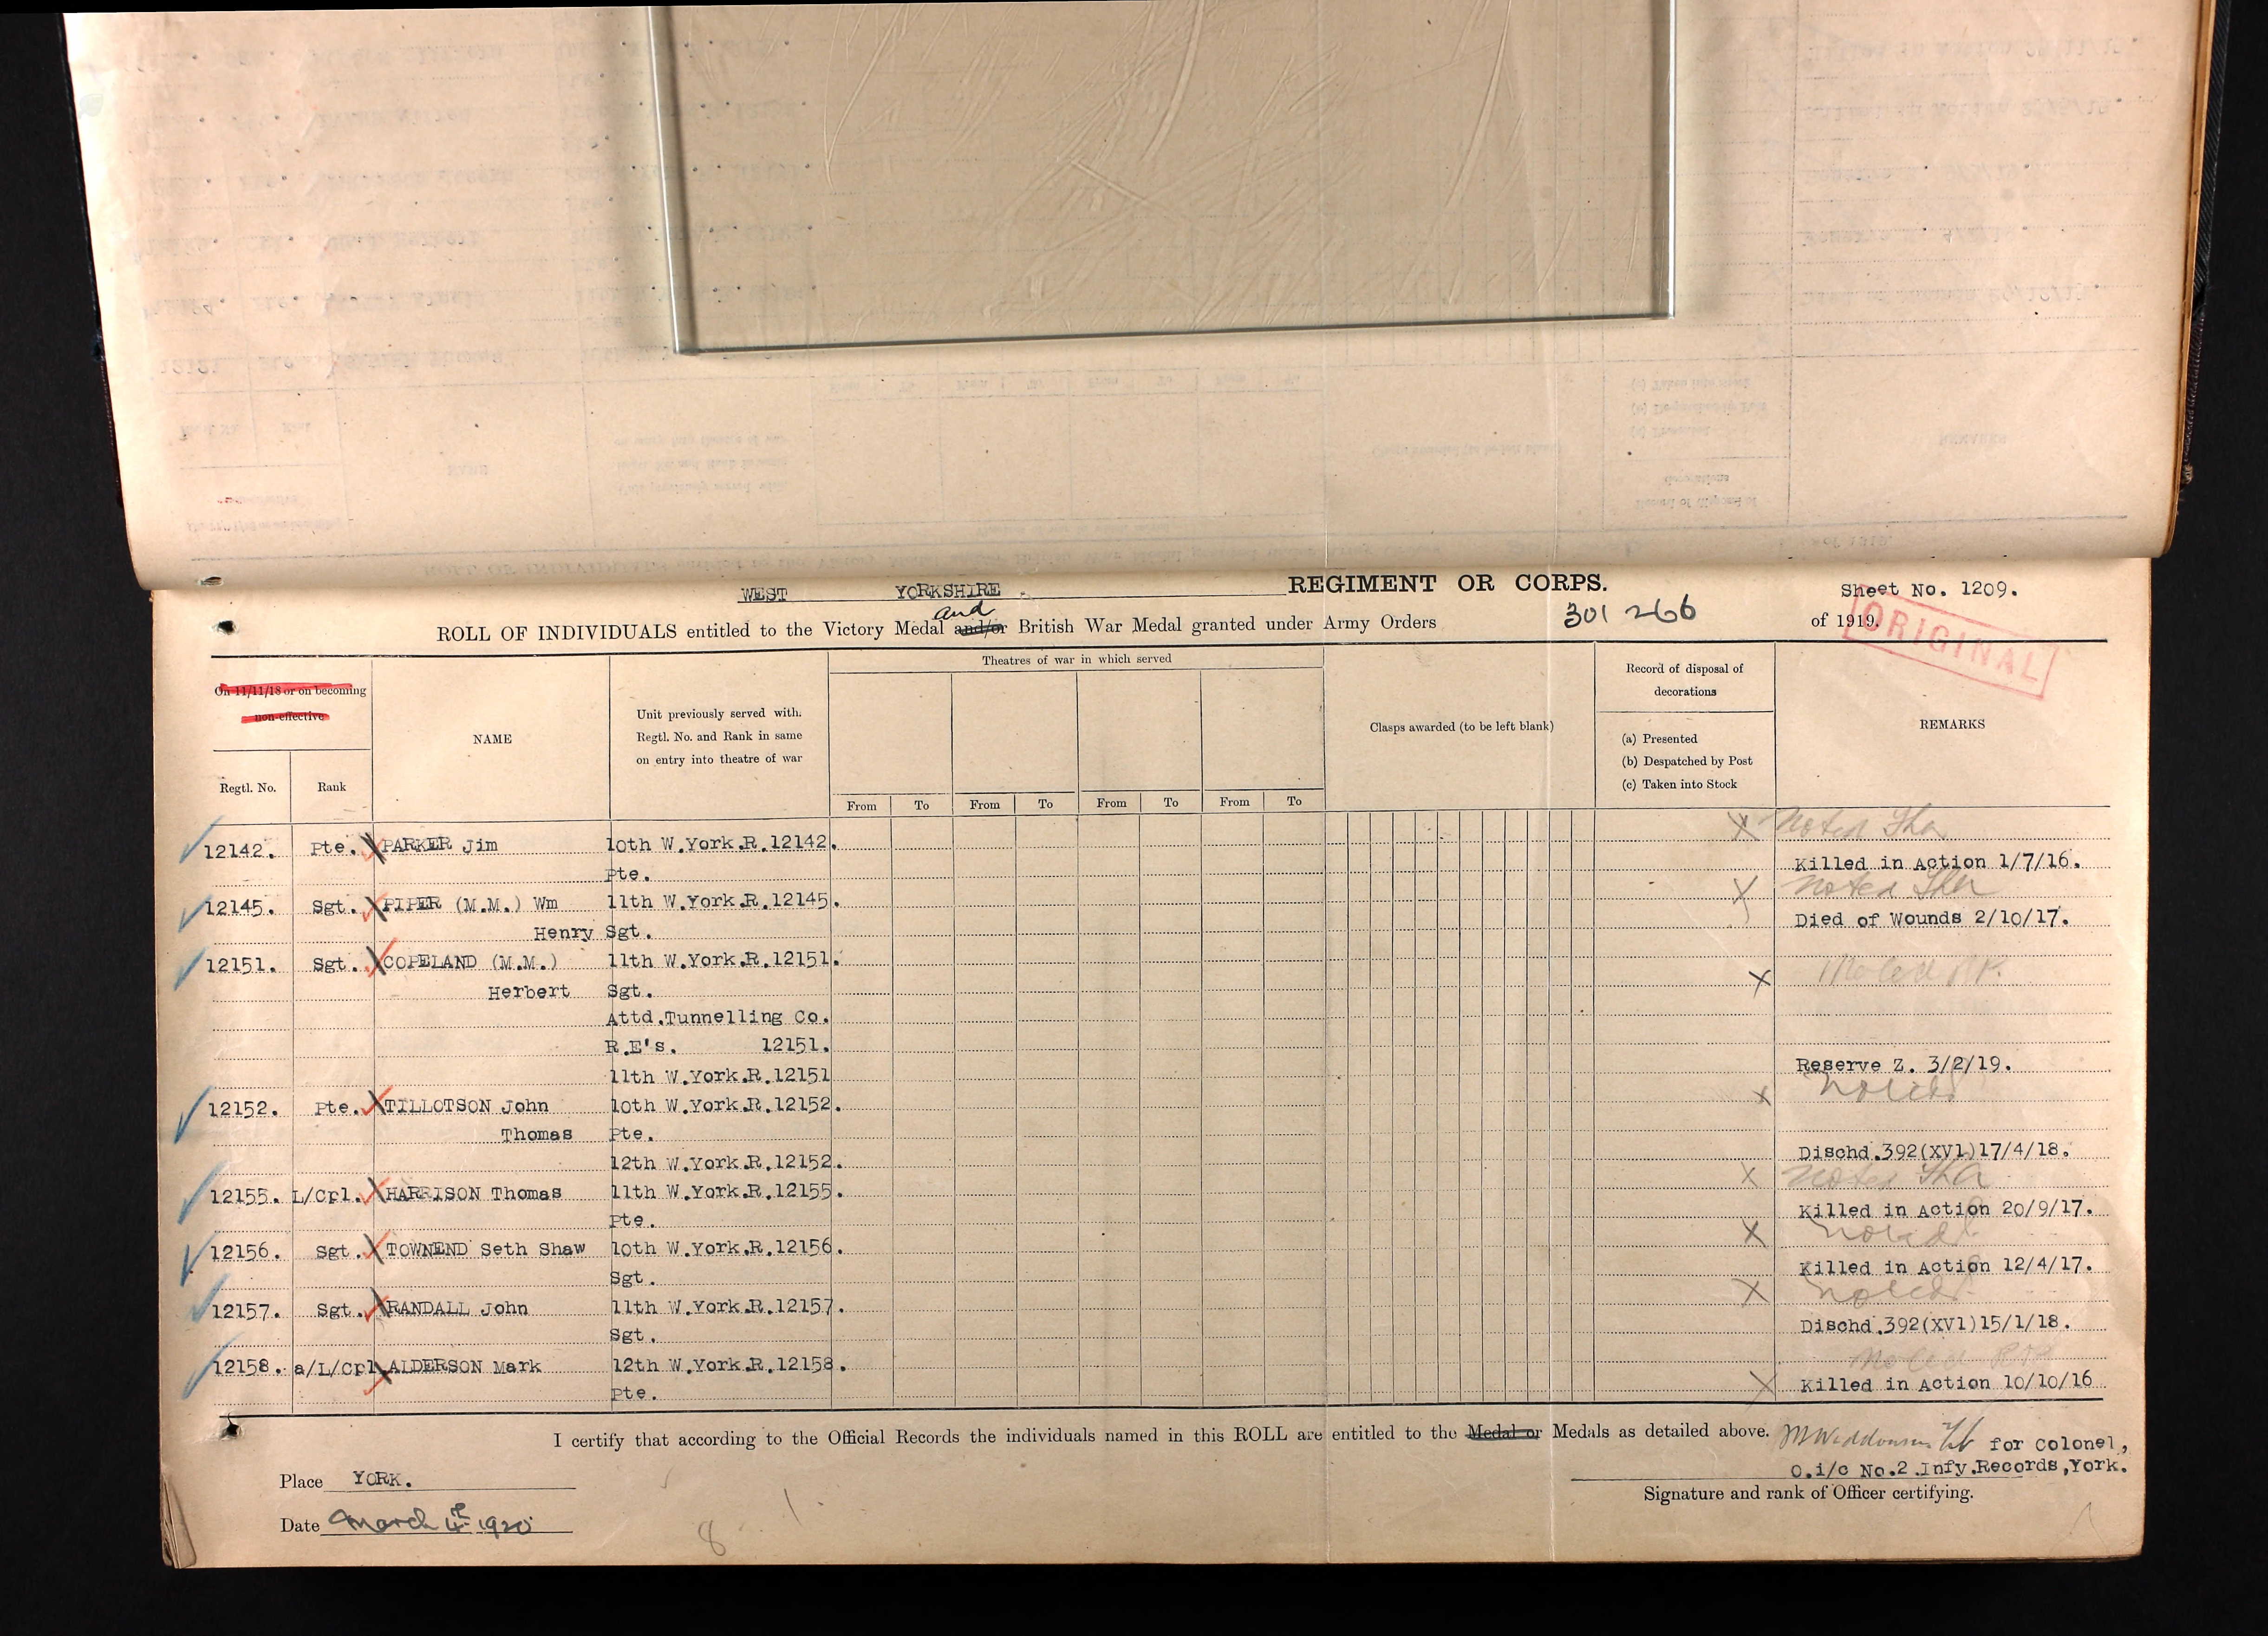 WEST YORKSHIRE. REGIMENT OR CORPS. Sheet No. 1209.
and
ROLL OF INDIVIDUALS entitled to the Victory Medal and/or British War Medal granted under Army Orders 301 266 of 1919.
ORIGINAL
On 11/11/18 or on becoming
non-effective
Regtl. No. Rank
NAME
Unit previously served with.
Regtl. No. and Rank in same
on entry into theatre of war
Theatres of war in which served
From To From To From To From To
Clasps awarded (to be left blank)
Record of disposal of
decorations
(a) Presented
(b) Despatched by Post
(c) Taken into Stock
REMARKS
Noted
12142. Pte. PARKER Jim 10th W.York.R.12142.
Pte. Killed in Action 1/7/16.
Noted
12145. Sgt. PIPER (M.M.) Wm 11th W.York.R.12145.
Henry Sgt. Died of Wounds 2/10/17.
12151. Sgt. COPELAND (M.M.) 11th W.York.R.12151. Noted
Herbert Sgt.
Attd.Tunnelling Co.
R.E's. 12151.
11th W.York.R.12151 Reserve Z. 3/2/19.
12152. Pte. TILLOTSON John 10th W.York.R.12152. Noted
Thomas Pte.
12th W.York.R.12152. Dischd.392(XVI)17/4/18.
12155. L/Cpl. HARRISON Thomas 11th W.York.R.12155. Noted
Pte. Killed in Action 20/9/17.
12156. Sgt. TOWNEND Seth Shaw 10th W.York.R.12156. Noted
Sgt. Killed in Action 12/4/17.
12157. Sgt. RANDALL John 11th W.York.R.12157. Noted
Sgt. Dischd.392(XVI)15/1/18.
12158. a/L/Cpl ALDERSON Mark 12th W.York.R.12158. Noted
Pte. Killed in Action 10/10/16
I certify that according to the Official Records the individuals named in this ROLL are entitled to the Medal or Medals as detailed above. for Colonel,
O.i/c No.2.Infy.Records,York.
Signature and rank of Officer certifying.
Place YORK.
Date March 4th 1920
8